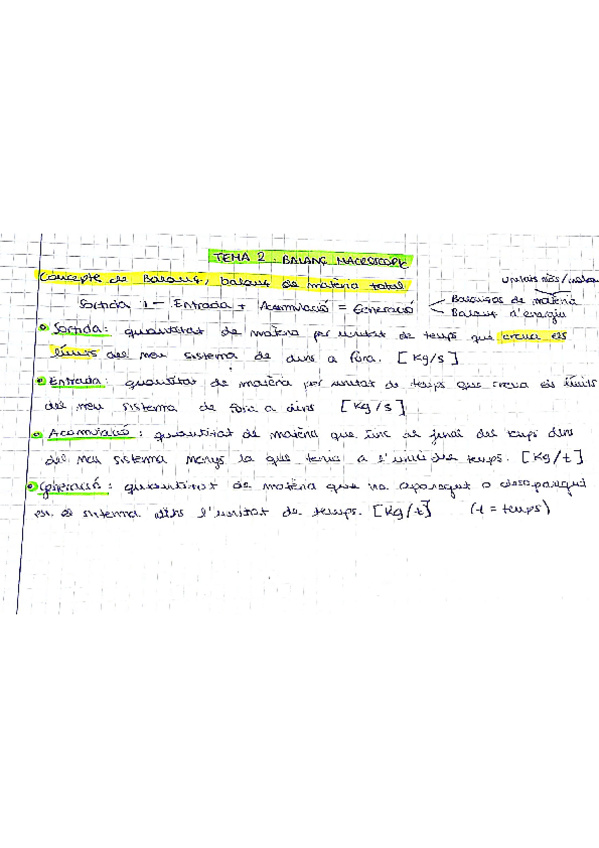 TEMA 2. BALANÇ MACROSCOPIC
Concepte de Balanç, balanç de matèria total
Unitats més/unitats
Sortida - Entrada + Acumulació = Generació
Balanços de matèria
Balanç d'energia
Sortida: quantitat de matèria per unitat de temps que creua els
límits del meu sistema de dins a fora. [Kg/s]
Entrada: quantitat de matèria per unitat de temps que creua els límits
del meu sistema de fora a dins [Kg/s]
Acomulació: quantitat de matèria que tinc al final del temps dins
del meu sistema menys la que tenia a l'inici del temps. [Kg/t]
Generació: quantitat de matèria que ha aparegut o desaparegut
en el sistema dins l'unitat de temps. [Kg/t] (t = temps)